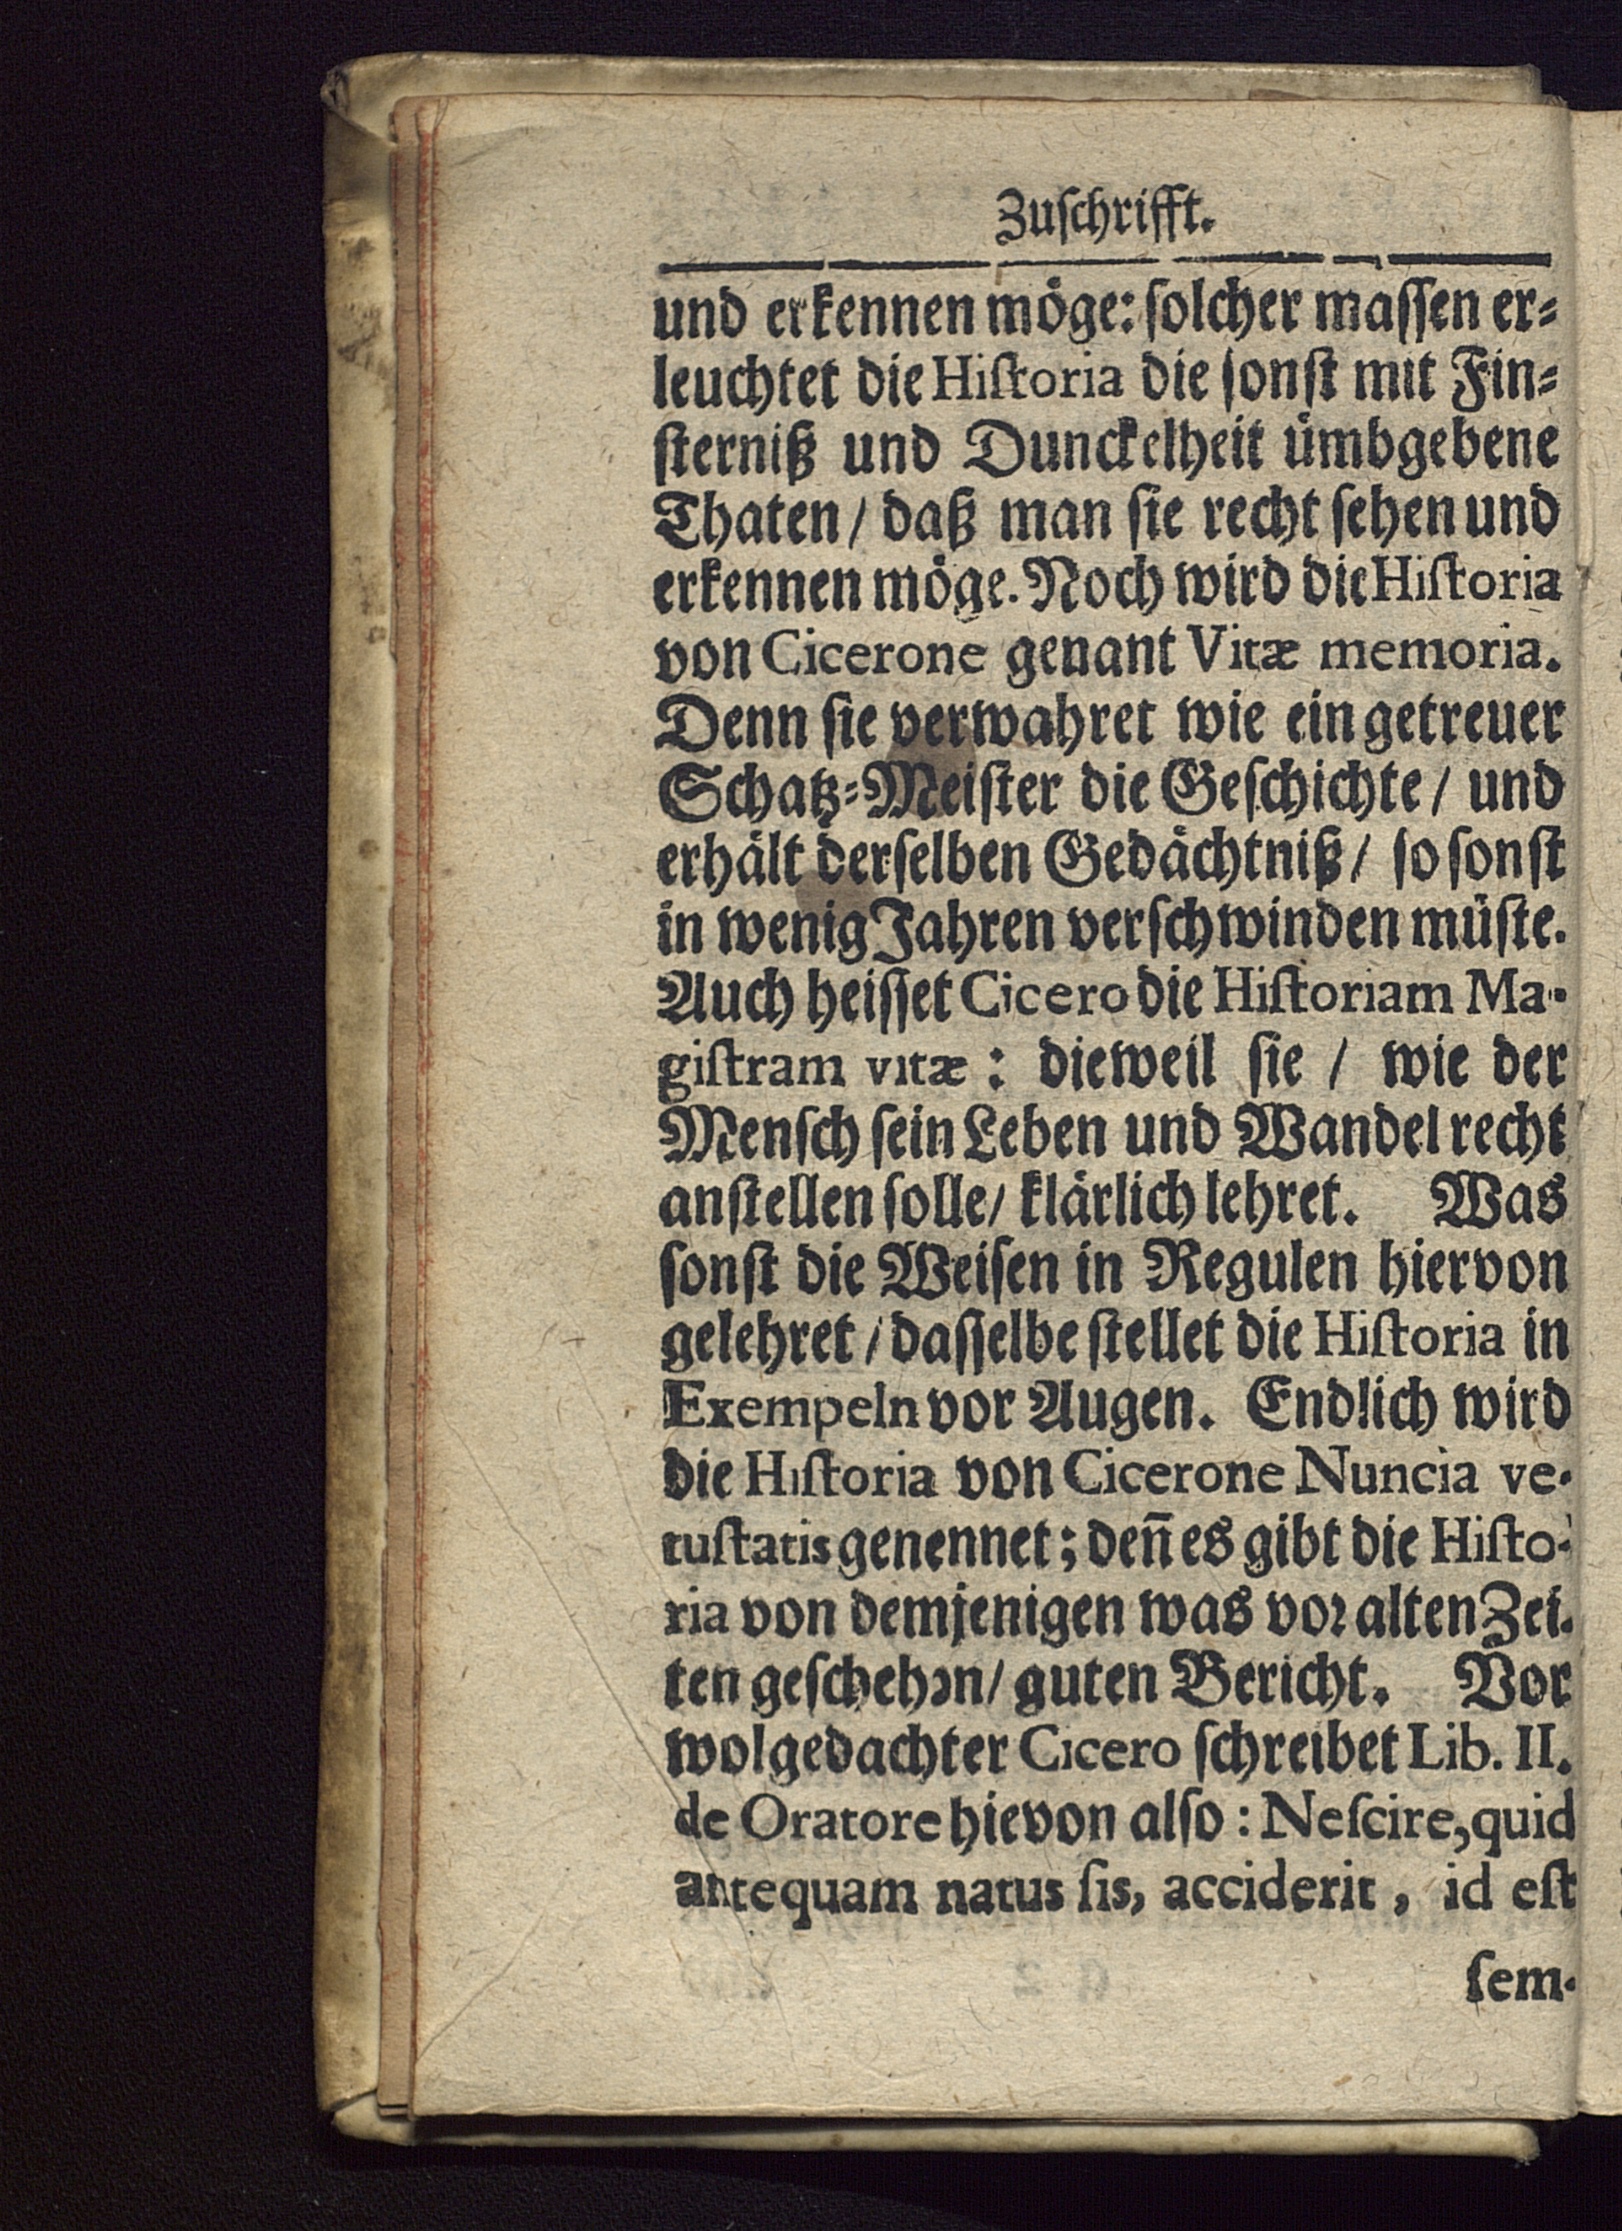 Zuſchrifft.
und erkennen möge: ſolcher maſſen er⸗
leuchtet die Hiſtoria die ſonſt mit Fin⸗
ſterniß und Dunckelheit ümbgebene
Thaten / daß man ſie recht ſehen und
erkennen möge. Noch wird die Hiſtoria
von Cicerone genant Vitæ memoria.
Denn ſie verwahret wie ein getreuer
Schatz⸗Meiſter die Geſchichte / und
erhält derſelben Gedächtniß / ſo ſonſt
in wenig Jahren verſchwinden müſte.
Auch heiſſet Cicero die Hiſtoriam Ma-
giſtram vitæ : dieweil ſie / wie der
Menſch ſein Leben und Wandel recht
anſtellen ſolle / klärlich lehret. Was
ſonſt die Weiſen in Regulen hiervon
gelehret / daſſelbe ſtellet die Hiſtoria in
Exempeln vor Augen. Endlich wird
die Hiſtoria von Cicerone Nuncia ve-
tuſtatis genennet; deñ es gibt die Hiſto-
ria von demjenigen was voꝛ alten Zei-
ten geſchehen / guten Bericht. Vor
wolgedachter Cicero ſchreibet Lib. II.
de Oratore hievon alſo : Neſcire, quid
antequam natus ſis, acciderit, id eſt
ſem-